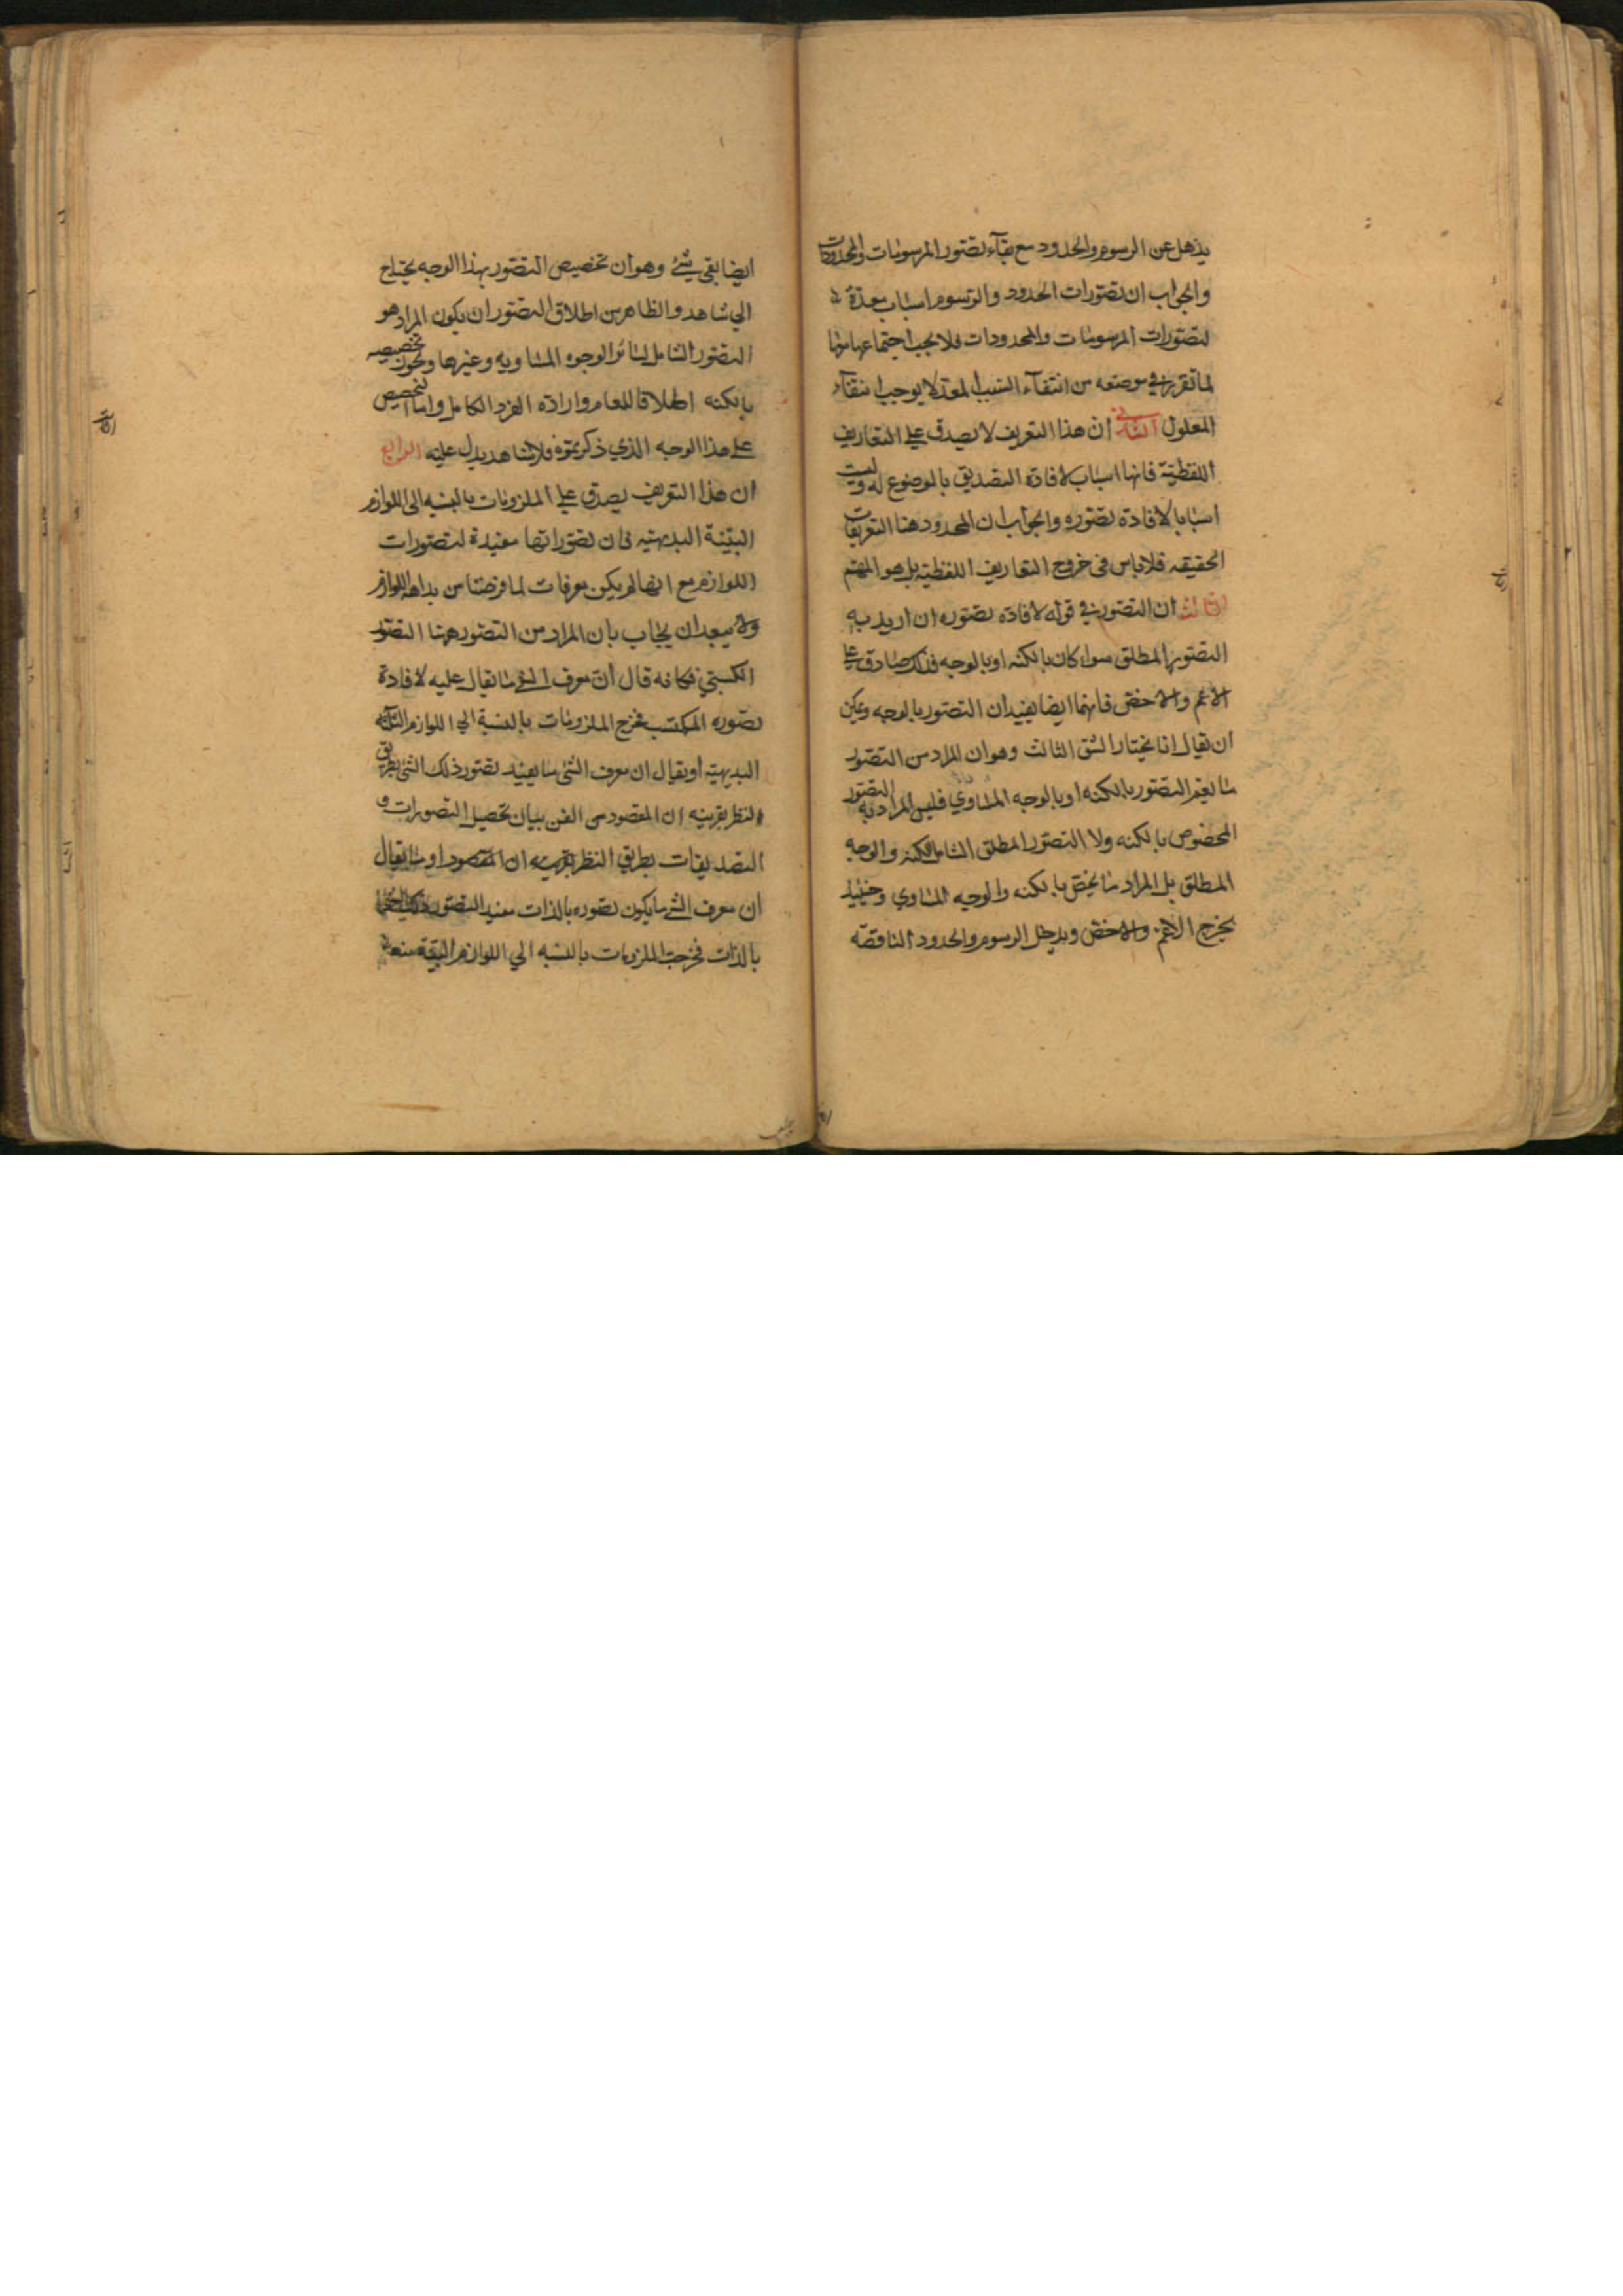 يذهل عن الرسوم والحدود مع بقآء تصور المرسومات والمحدودات
والجواب ان تصورات الحدود والرسوم اسباب معدة
لتصورات المرسومات والمحدودات فلا يجب اجتماعها معها
لما تقرر في موضعه من انتفآء السبب المعد لا يوجب انتفآء
المعلول الثاني ان هذا التعريف لا يصدق علي التعاريف
اللفظية فانها اسباب لافادة التصديق بالموضوع له وليست
اسبابا لافادة تصوره والجواب ان المحدود هنا التعريفات
الحقيقه فلا باس في خروج التعاريف اللفظية بل هو المهتم
الثالث ان التصور في قوله لافادة تصوره ان اريد به
التصور المطلق سواء كان بالكنه او بالوجه فذلك صادق علي
الاعم والاخص فانهما ايضا يفيدان التصور بالوجه ويمكن
ان يقال انا نختار الشق الثالث وهو ان المراد من التصور
ما يعم التصور بالكنه او بالوجه المساوي فليس المراد به التصور
المخصوص بالكنه ولا التصور المطلق الشامل للكنه والوجه
المطلق بل المراد ما يختص بالكنه والوجه المساوي وحينئذ
يخرج الاعم والاخص ويدخل الرسوم والحدود الناقصة
ايضا بقي شئ وهو ان تخصيص التصور بهذا الوجه يحتاج
الي شاهد والظاهر من اطلاق التصور ان يكون المراد هو
التصور الشامل لسائر الوجوه المساويه وغيرها ويجوز تخصيصه
بالكنه اطلاقا للعام وارادة الفرد الكامل واما التخصيص
علي هذا الوجه الذي ذكرتموه فلا شاهد يدل عليه الرابع
ان هذا التعريف يصدق علي الملزومات بالنسبه الى اللوازم
البينة البديهيه فان تصوراتها مفيدة لتصورات
اللوازم مع انها لم يكن معرفات لما فرضنا من بداهة اللوازم
ولا يبعد ان يجاب بان المراد من التصور ههنا التصور
الكسبي فكانه قال ان معرف الشئ ما يقال عليه لافادة
تصوره المكتسب فخرج الملزومات بالنسبة الي اللوازم البينة
البديهية او يقال ان معرف الشئ ما يفيد تصور ذلك الشئ بطريق
النظر بقرينه ان المقصود من الفن بيان تحصيل التصورات و
التصديقات بطريق النظر بقرينه ان المقصود او ما يقال
ان معرف الشئ ما يكون تصوره بالذات مفيد التصور ذلك الشئ
بالذات فخرجت الملزومات بالنسبه الي اللوازم البينة